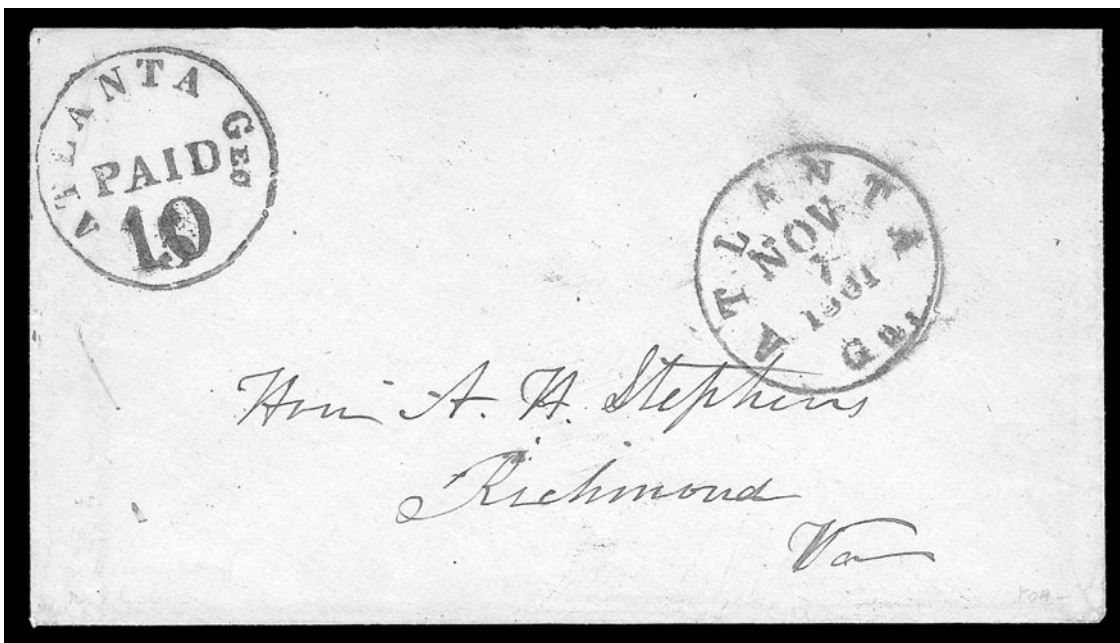 ATLANTA GEO
PAID
10
ATLANTA Ga.
NOV
1861
Hon A. H. Stephens
Richmond
Va